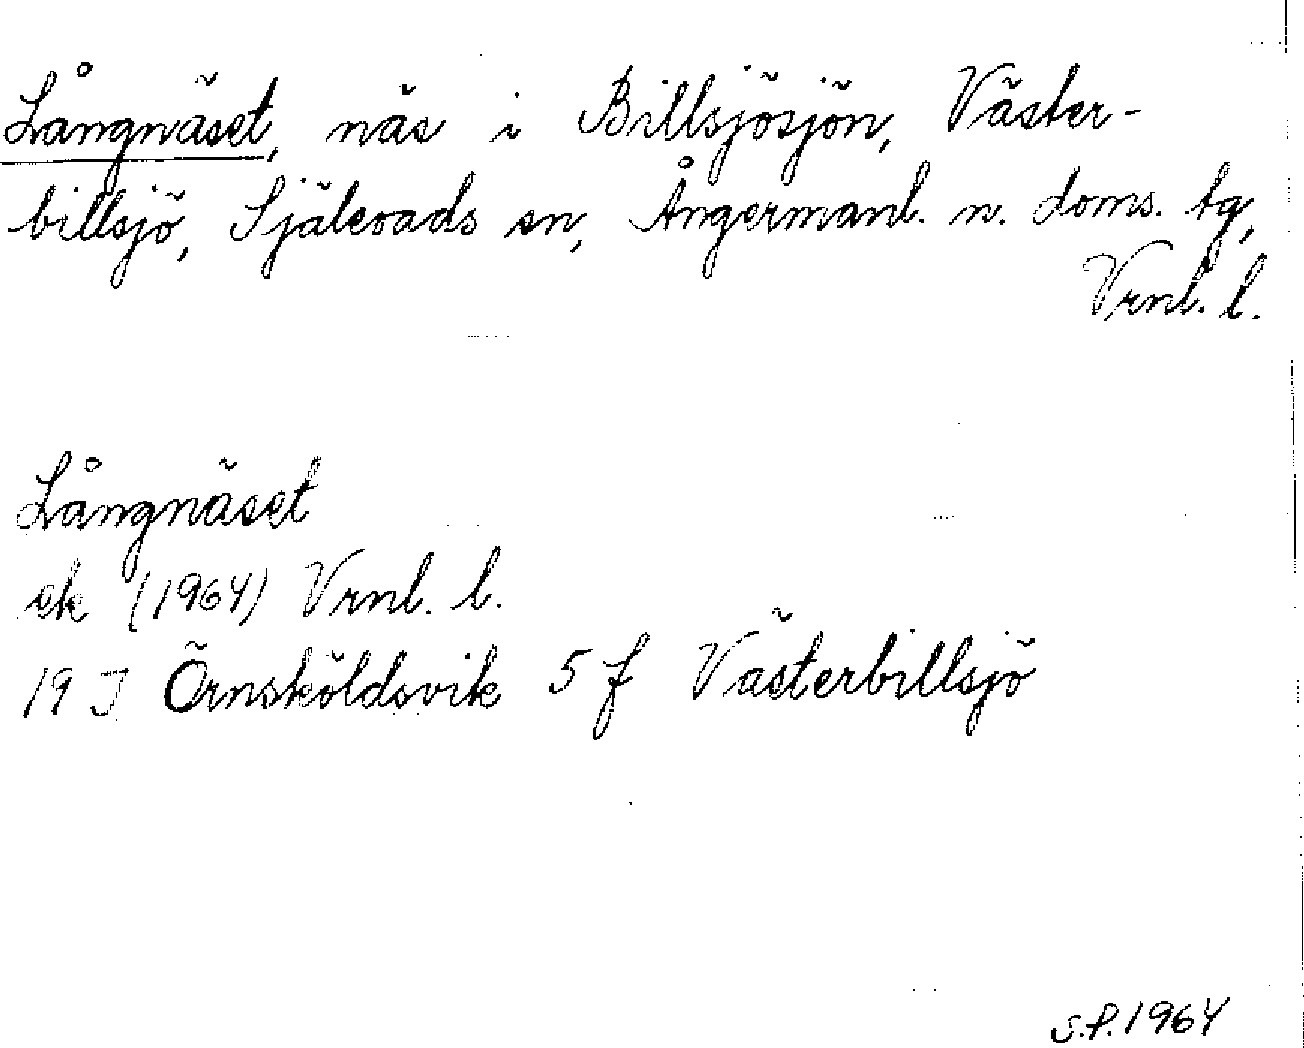 Långnäset, näs i Billsjösjön, Väster-
billsjö, Själevads sn, Ångermanl. n. doms. tg,
Vrnl. l.
Långnäset
ek (1964) Vrnl. l.
19 J Örnsköldsvik 5 f Västerbillsjö
S.P. 1964